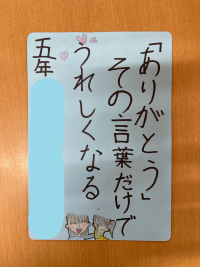 「ありがとう」
その言葉だけで
うれしくなる
五年